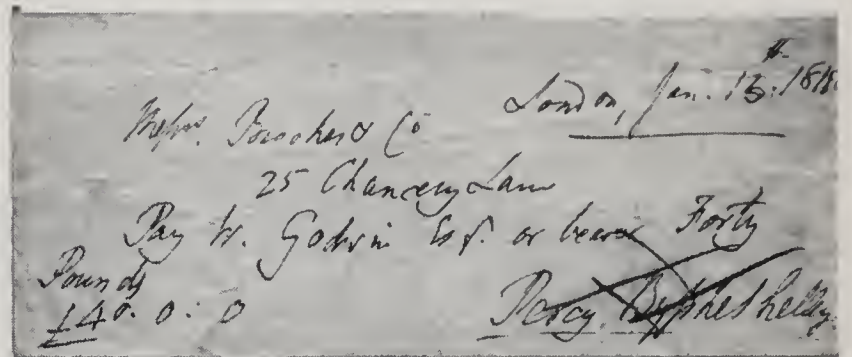 London, Jan. 13th. 1818.
Messrs. Brookes & Co
25 Chancery Lane
Pay W. Godwin Esqr. or bearer Forty
Pounds
£40: 0: 0
Percy Bysshe Shelley.